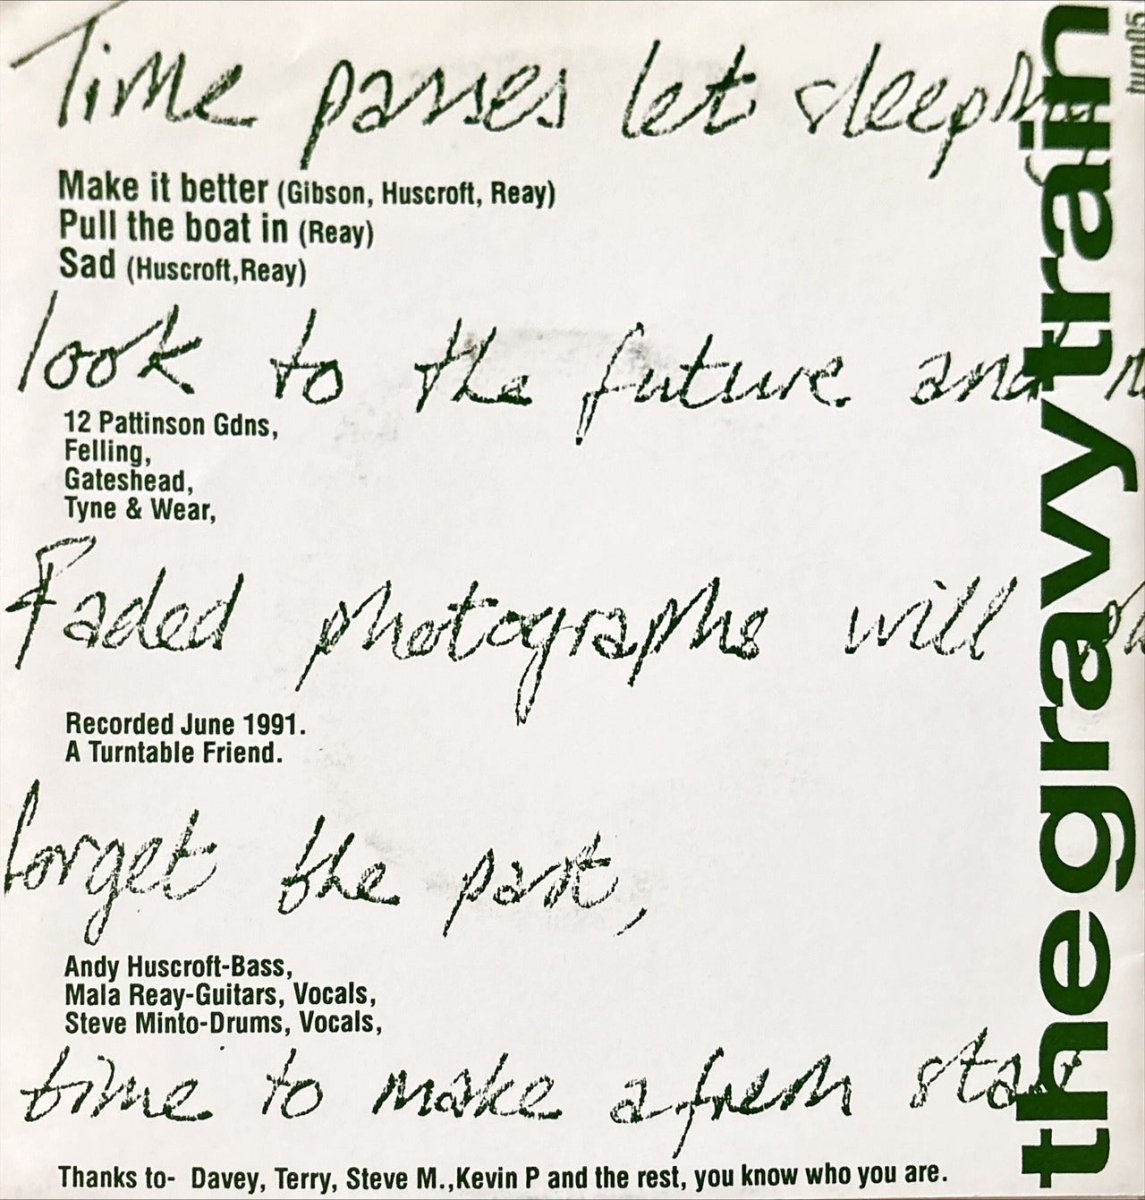 Time passes let
Make it better (Gibson, Huscroft, Reay)
Pull the boat in (Reay)
Sad (Huscroft,Reay)
look to the future and
12 Pattinson Gdns,
Felling,
Gateshead,
Tyne & Wear,
Faded photographs will
Recorded June 1991.
A Turntable Friend.
forget the past,
Andy Huscroft-Bass,
Mala Reay-Guitars, Vocals,
Steve Minto-Drums, Vocals,
time to make a fresh
Thanks to- Davey, Terry, Steve M.,Kevin P and the rest, you know who you are.
the gravy train
turn05